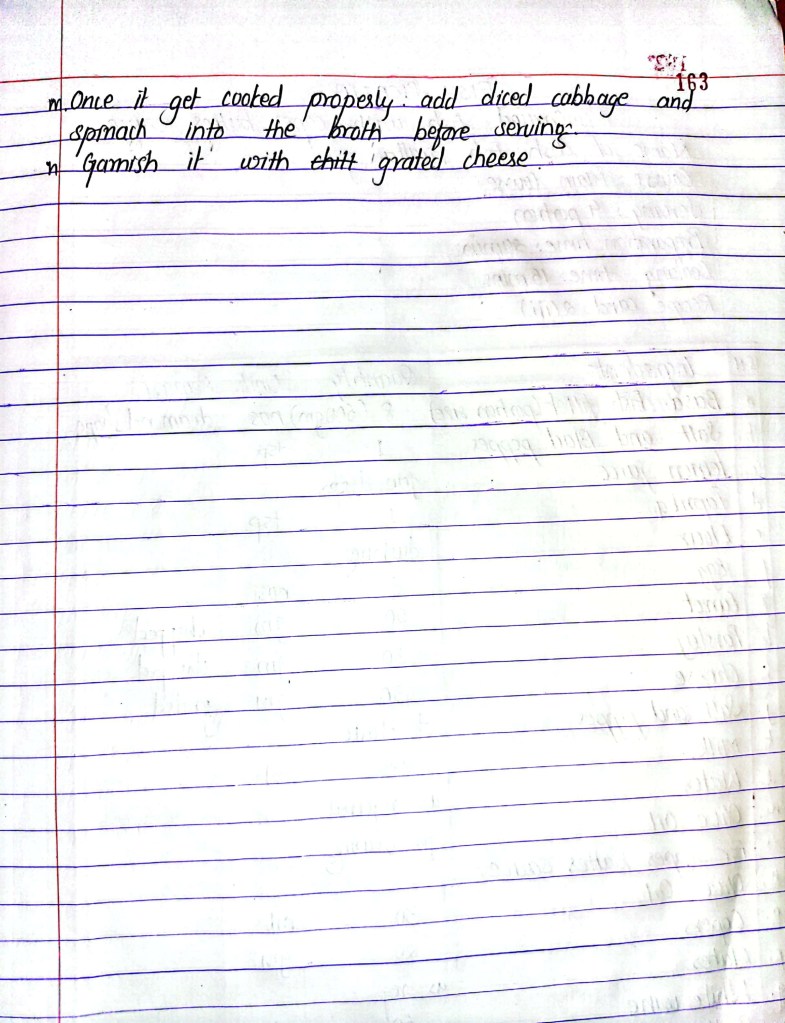 163
m. Once it get cooked properly. add diced cabbage and
spinach into the broth before serving.
n Garnish it with grated cheese.